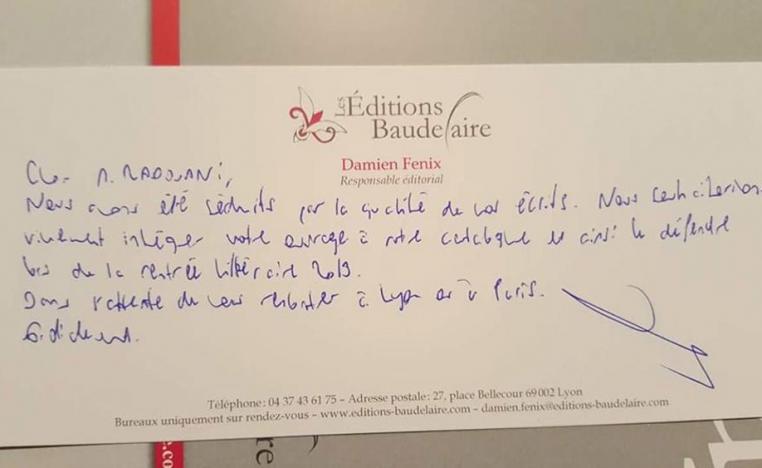 Les Éditions
Baudelaire
Damien Fenix
Responsable éditorial
Cher M. RADOUANI,
Nous avons été séduits par la qualité de vos écrits. Nous souhaiterions
vivement intégrer votre ouvrage à notre catalogue et ainsi le défendre
lors de la rentrée littéraire 2019.
Dans l'attente de vous rencontrer à Lyon ou à Paris.
Téléphone : 04 37 43 61 75 – Adresse postale : 27, place Bellecour 69002 Lyon
Bureaux uniquement sur rendez-vous – www.editions-baudelaire.com – damien.fenix@editions-baudelaire.com
.co
re